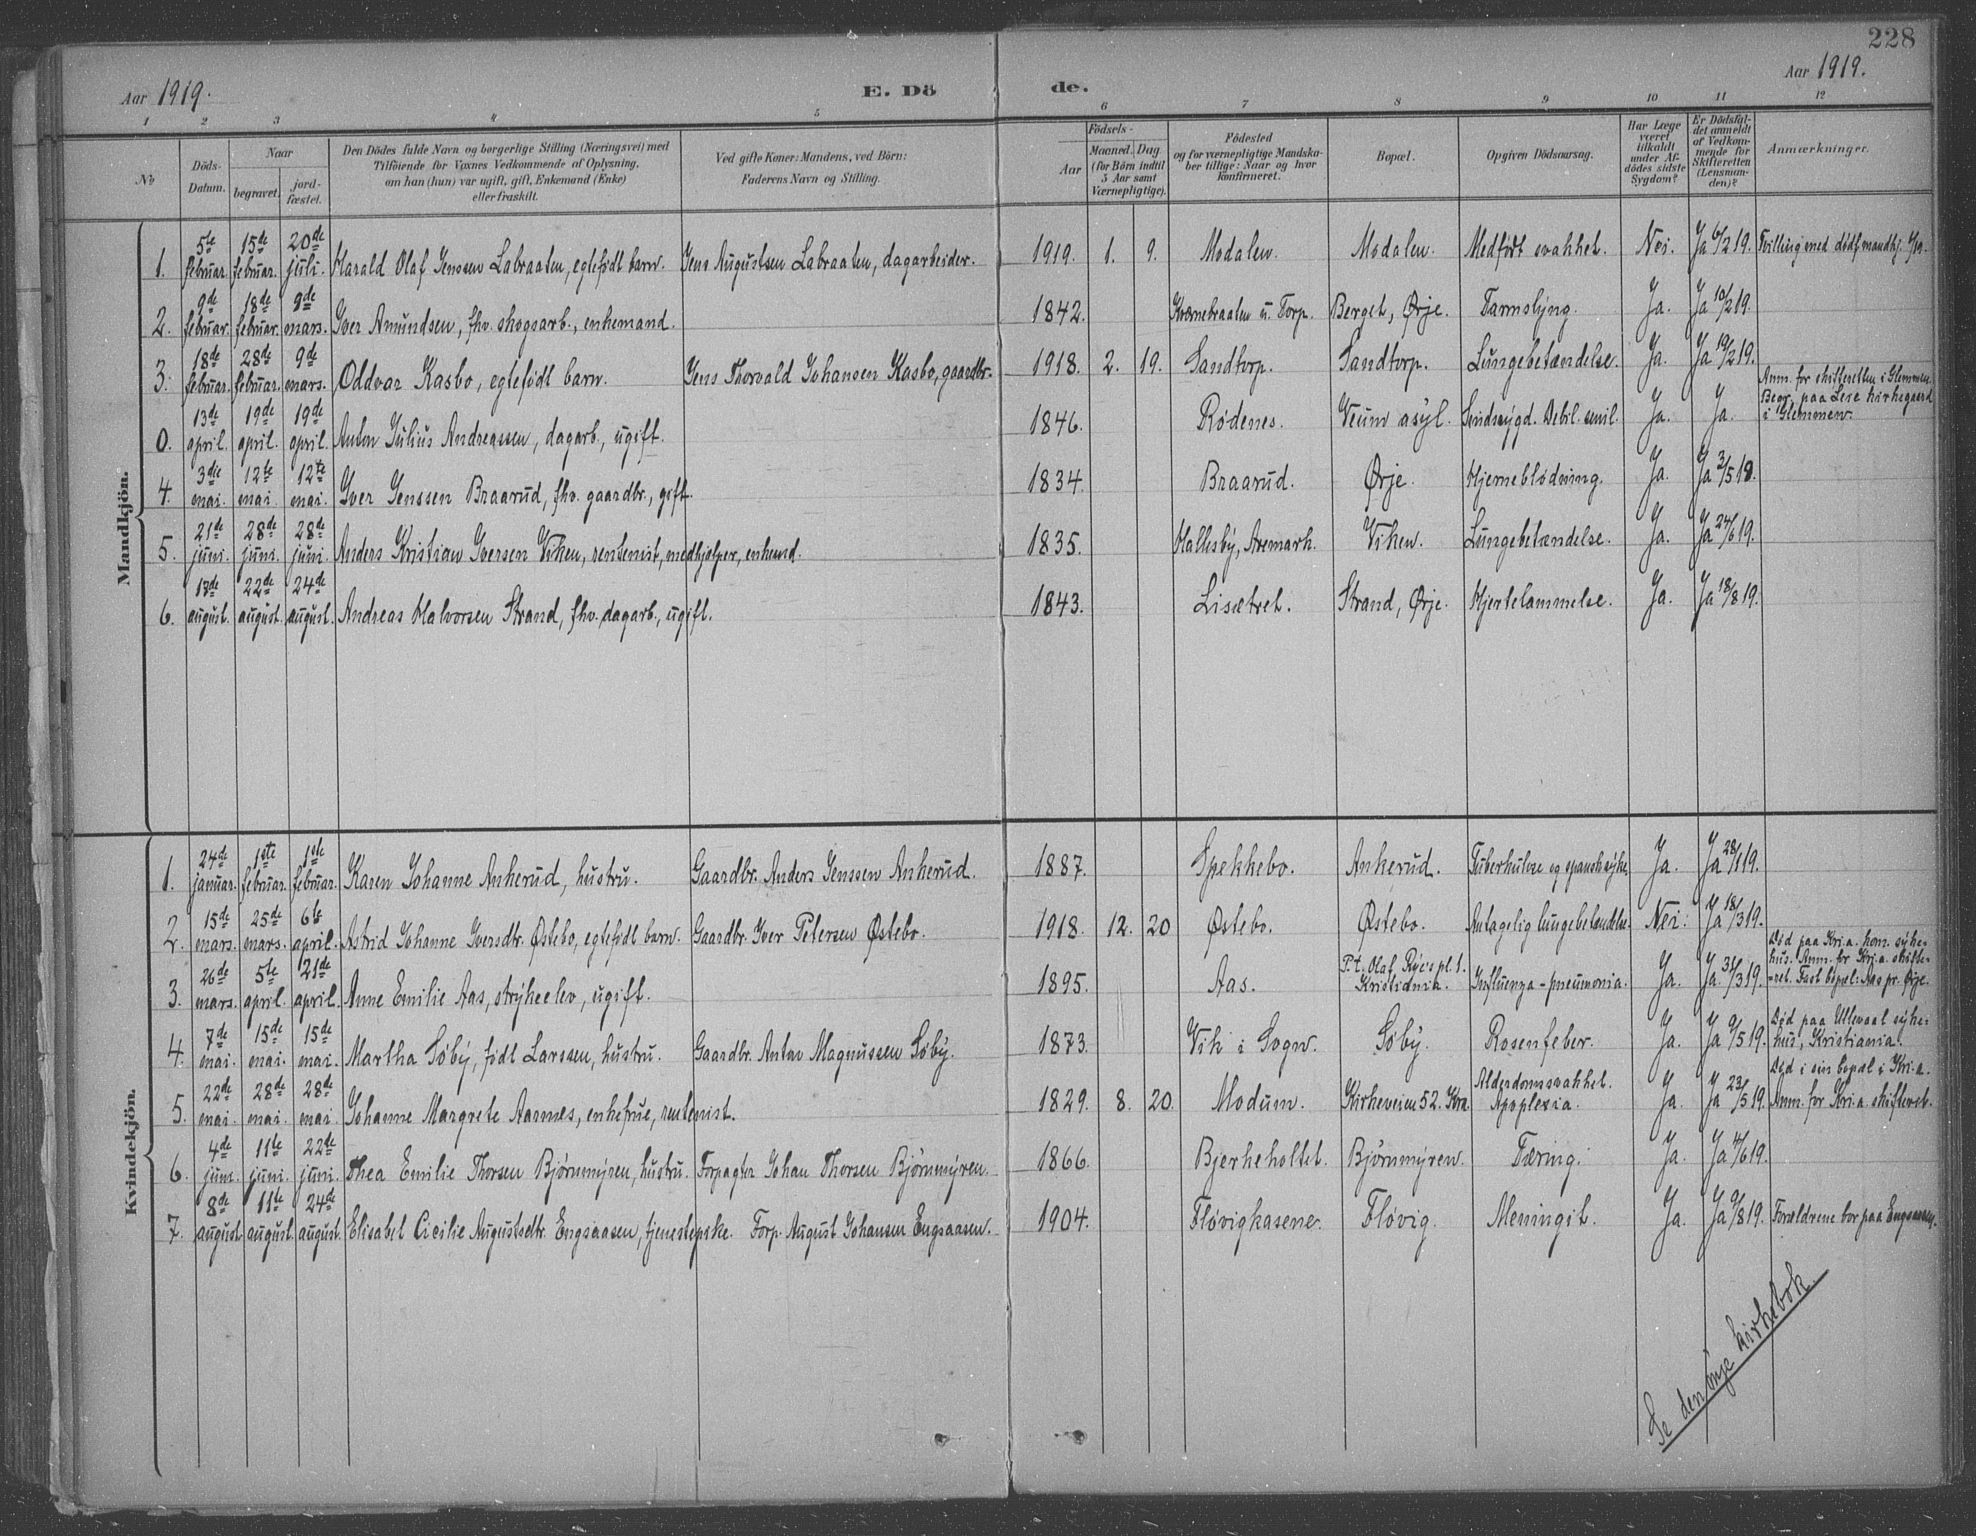 228
Aar 1919.
E. Dö de.
Aar 1919.
1 2 3 4 5 6 7 8 9 10 11 12
No
Döds-Datum.
Naar
begravet.
jord-fæstet.
Den Dödes fulde Navn og borgerlige Stilling (Næringsvei) med
Tilföiende for Voxnes Vedkommende af Oplysning,
om han (hun) var ugift, gift, Enkemand (Enke)
eller fraskilt.
Ved gifte Koner: Mandens, ved Börn:
Faderens Navn og Stilling.
Födsels-
Aar
Maaned. Dag
(for Börn indtil
5 Aar samt
Værnepligtige).
Födested
og for værnepligtige Mandska-
ber tillige: Naar og hvor
konfirmeret.
Bopæl.
Opgiven Dödsaarsag.
Har Læge
været
tilkaldt
under Af-
dödes sidste
Sygdom?
Er Dödsfal-
det anmeldt
af Vedkom-
mende for
Skifteretten
(Lensman-
den)?
Anmærkninger.
Mandkjön.
1. 5te februar. 15de februar. 20de juli. Harald Olaf Jenssen Labraaten, egtefødt barn. Jens Augustsen Labraaten, dagarbeider. 1919. 1. 9. Modalen. Modalen. Medfødt svakhet. Nei. Ja 6/2 19. Tvilling med dødf. mandkj.
2. 9de februar. 18de februar. 9de mars. Iver Amundsen, fhv. skogsarb., enkemand. 1842. Kvernebraaten u. Torp. Berget, Ørje. Tarmslyng. Ja. Ja 10/2 19.
3. 18de februar. 28de februar. 9de mars. Oddvar Kasbo, egtefødt barn. Jens Thorvald Johansen Kasbo, gaardbr. 1918. 2. 19. Sandtorp. Sandtorp. Lungebetændelse. Ja. Ja 19/2 19.
0. 13de april. 19de april. 19de april. Anton Julius Andreassen, dagarb., ugift. 1846. Rødenes. Veum asyl. Sindssygd. Debil. senil. Ja. Ja. Anm. for skifteretten i Glemmen. Begr. paa Leie kirkegaard i Glemmen.
4. 3die mai. 12te mai. 12te mai. Iver Jenssen Braarud, fhv. gaardbr., gift. 1834. Braarud. Ørje. Hjerneblødning. Ja. Ja 3/5 19.
5. 21de juni. 28de juni. 28de juni. Anders Kristian Iversen Viken, rentenist, medhjelper, enkemd. 1835. Hallesby, Aremark. Viken. Lungebetændelse. Ja. Ja 24/6 19.
6. 17de august. 22de august. 24de august. Andreas Halvorsen Strand, fhv. dagarb., ugift. 1843. Lisætret. Strand, Ørje. Hjertelammelse. Ja. Ja 18/8 19.
Kvindekjön.
1. 24de januar. 1ste februar. 1ste februar. Karen Johanne Ankerud, hustru. Gaardbr. Anders Jenssen Ankerud. 1887. Spekkebo. Ankerud. Tuberkulose og spansksyke. Ja. Ja 28/1 19.
2. 15de mars. 25de mars. 6te april. Astrid Johanne Iversdtr. Østebo, egtefødt barn. Gaardbr. Iver Petersen Østebo. 1918. 12. 20 Østebo. Østebo. Antagelig lungebetændelse. Nei. Ja 18/3 19.
3. 26de mars. 5te april. 21de april. Anne Emilie Aas, strykeelev, ugift. 1895. Aas. P.t. Olaf Ryes pl. 1. Kristiania. Influenza-pneumonia. Ja. Ja 31/3 19. Død paa Kr.a. kom. syke-hus. Anm. for Kr.a. skifte-ret. Fast bopæl: Aas pr. Ørje.
4. 7de mai. 15de mai. 15de mai. Martha Søby, født Larssen, hustru. Gaardbr. Anton Magnussen Søby. 1873. Vik i Sogn. Søby. Rosenfeber. Ja. Ja 9/5 19. Død paa Ullevaal syke-hus, Kristiania.
5. 22de mai. 28de mai. 28de mai. Johanne Margrete Aarnes, enkefrue, rentenist. 1829. 8. 20. Modum. Kirkeveien 52. Kra. Alderdomssvakhet. Apoplexia. Ja. Ja 23/5 19. Død i sin bopæl i Kr.a. Anm. for Kr.a. skifteret.
6. 4de juni. 11te juni. 22de juni. Thea Emilie Thorsen Bjørnmyren, hustru. Forpagter Johan Thorsen Bjørnmyren. 1866. Bjerkeholtet. Bjørnmyren. Tæring. Ja. Ja 4/6 19.
7. 8de august. 11te august. 24de august. Elisabet Cicilie Augustsdtr. Engsaasen, tjenestepike. Forp. August Johansen Engsaasen. 1904. Fløvigkasene. Fløvig. Meningit. Ja. Ja 9/8 19. Forældrene bor paa Engsaasen.
Se den nye kirkebok.